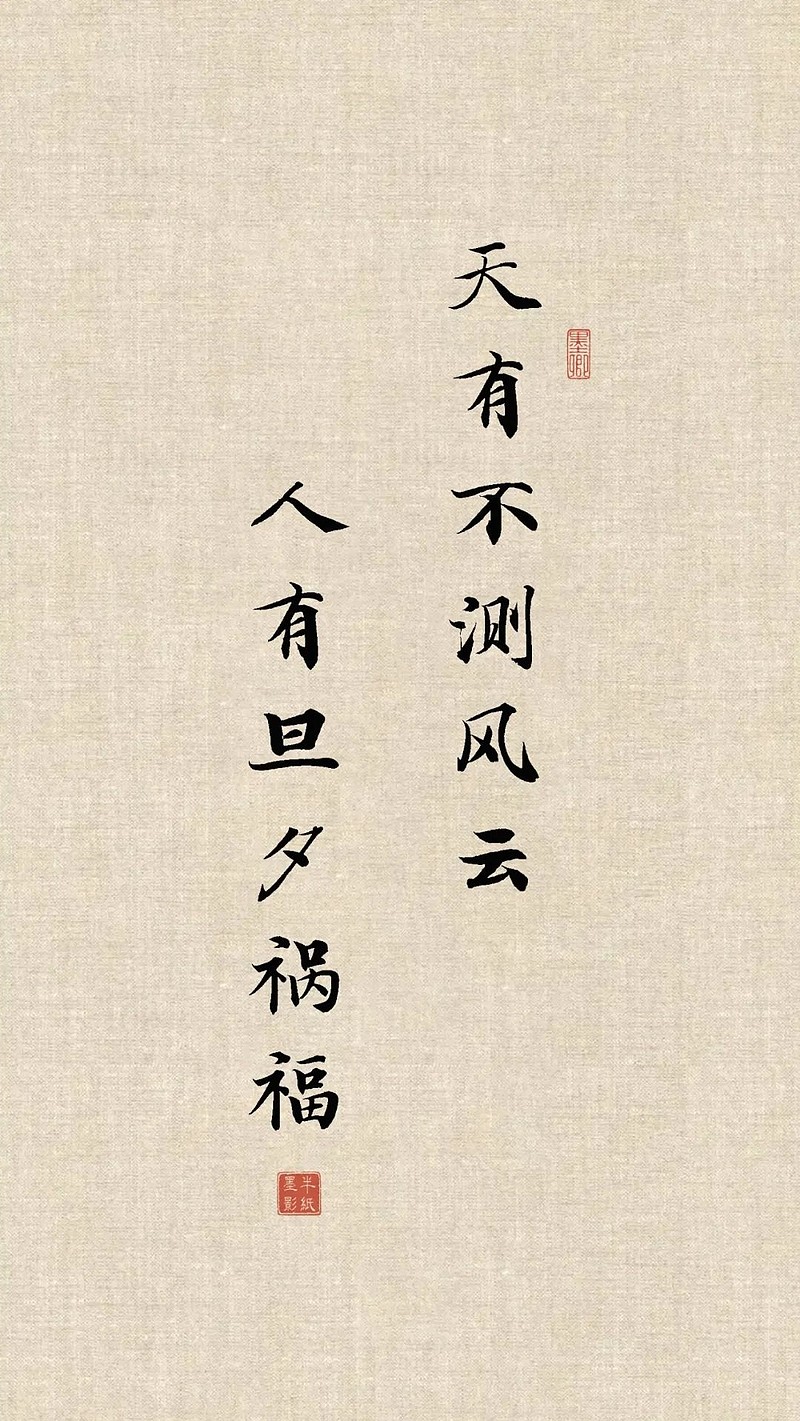 天有不测风云
墨卿
人有旦夕祸福
半纸
墨影